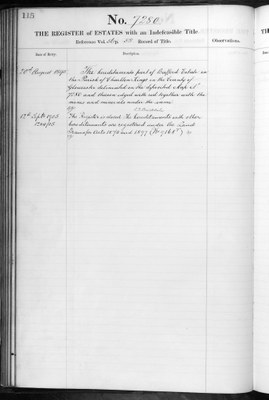 115
No. 7250
THE REGISTER of ESTATES with an Indefeasible Title.
Reference Vol. Record of Title.
Date of Entry.
Description.
Observations.
August
The hereditaments part of Estate in
the Parish of Charlton Kings in the County of
Gloucester delineated on the deposited Map No
7250 and thereon edged with red together with the
mines and minerals under the same.
17th Septr 1903
The Register is closed. The hereditaments with other
hereditaments are registered under the Land
Transfer Acts 1875 and 1897